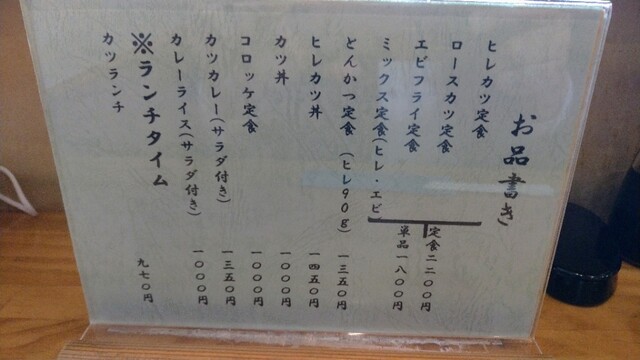 お品書き
ヒレカツ定食
ロースカツ定食
エビフライ定食
ミックス定食(ヒレ・エビ
定食二二〇〇円
単品一八〇〇円
とんかつ定食(ヒレ90g) 一三五〇円
ヒレカツ丼 一四五〇円
カツ丼 一〇〇〇円
コロッケ定食 一〇〇〇円
カツカレー(サラダ付き) 一三五〇円
カレーライス(サラダ付き) 一〇〇〇円
※ランチタイム
カツランチ 九七〇円